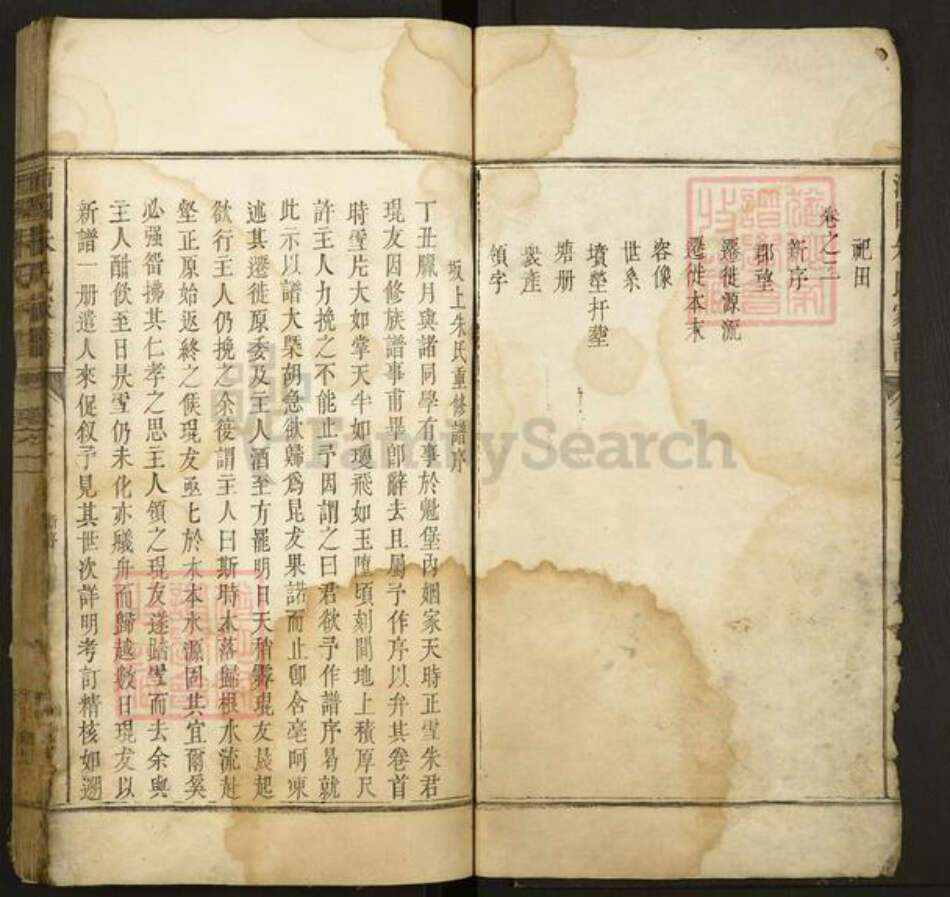 祀田
卷之二
新序
郡望
遷徙源流
遷徙本末
容像
世系
墳塋扦𦵏
塘册
裳產
領字
坂上朱氏重修譜序
丁丑臘月與諸同學有事於魁堡內姻家天時正雪朱君
琨友因修族譜事甫畢卽辭去且屬予作序以弁其卷首
時雪片大如掌天半如瓊飛如玉墮頃刻間地上積厚尺
許主人力挽之不能止予因謂之曰君欲予作譜序曷就
此示以譜大槩胡急欲歸爲昆友果諾而止卽含毫呵凍
述其遷徙原委及主人酒至方罷明日天稍霽琨友晨起
欲行主人仍挽之余復謂主人曰斯時木落歸根水流赴
壑正原始返終之候琨友亟亾於木本水源固其宜爾奚
必强留拂其仁孝之思主人領之琨友遂踏雪而去余與
主人酣飮至日昃雪仍未化亦艤舟而歸越數日琨友以
新譜一册遣人來促叙予見其世次詳明考訂精核如遡
FamilySearch